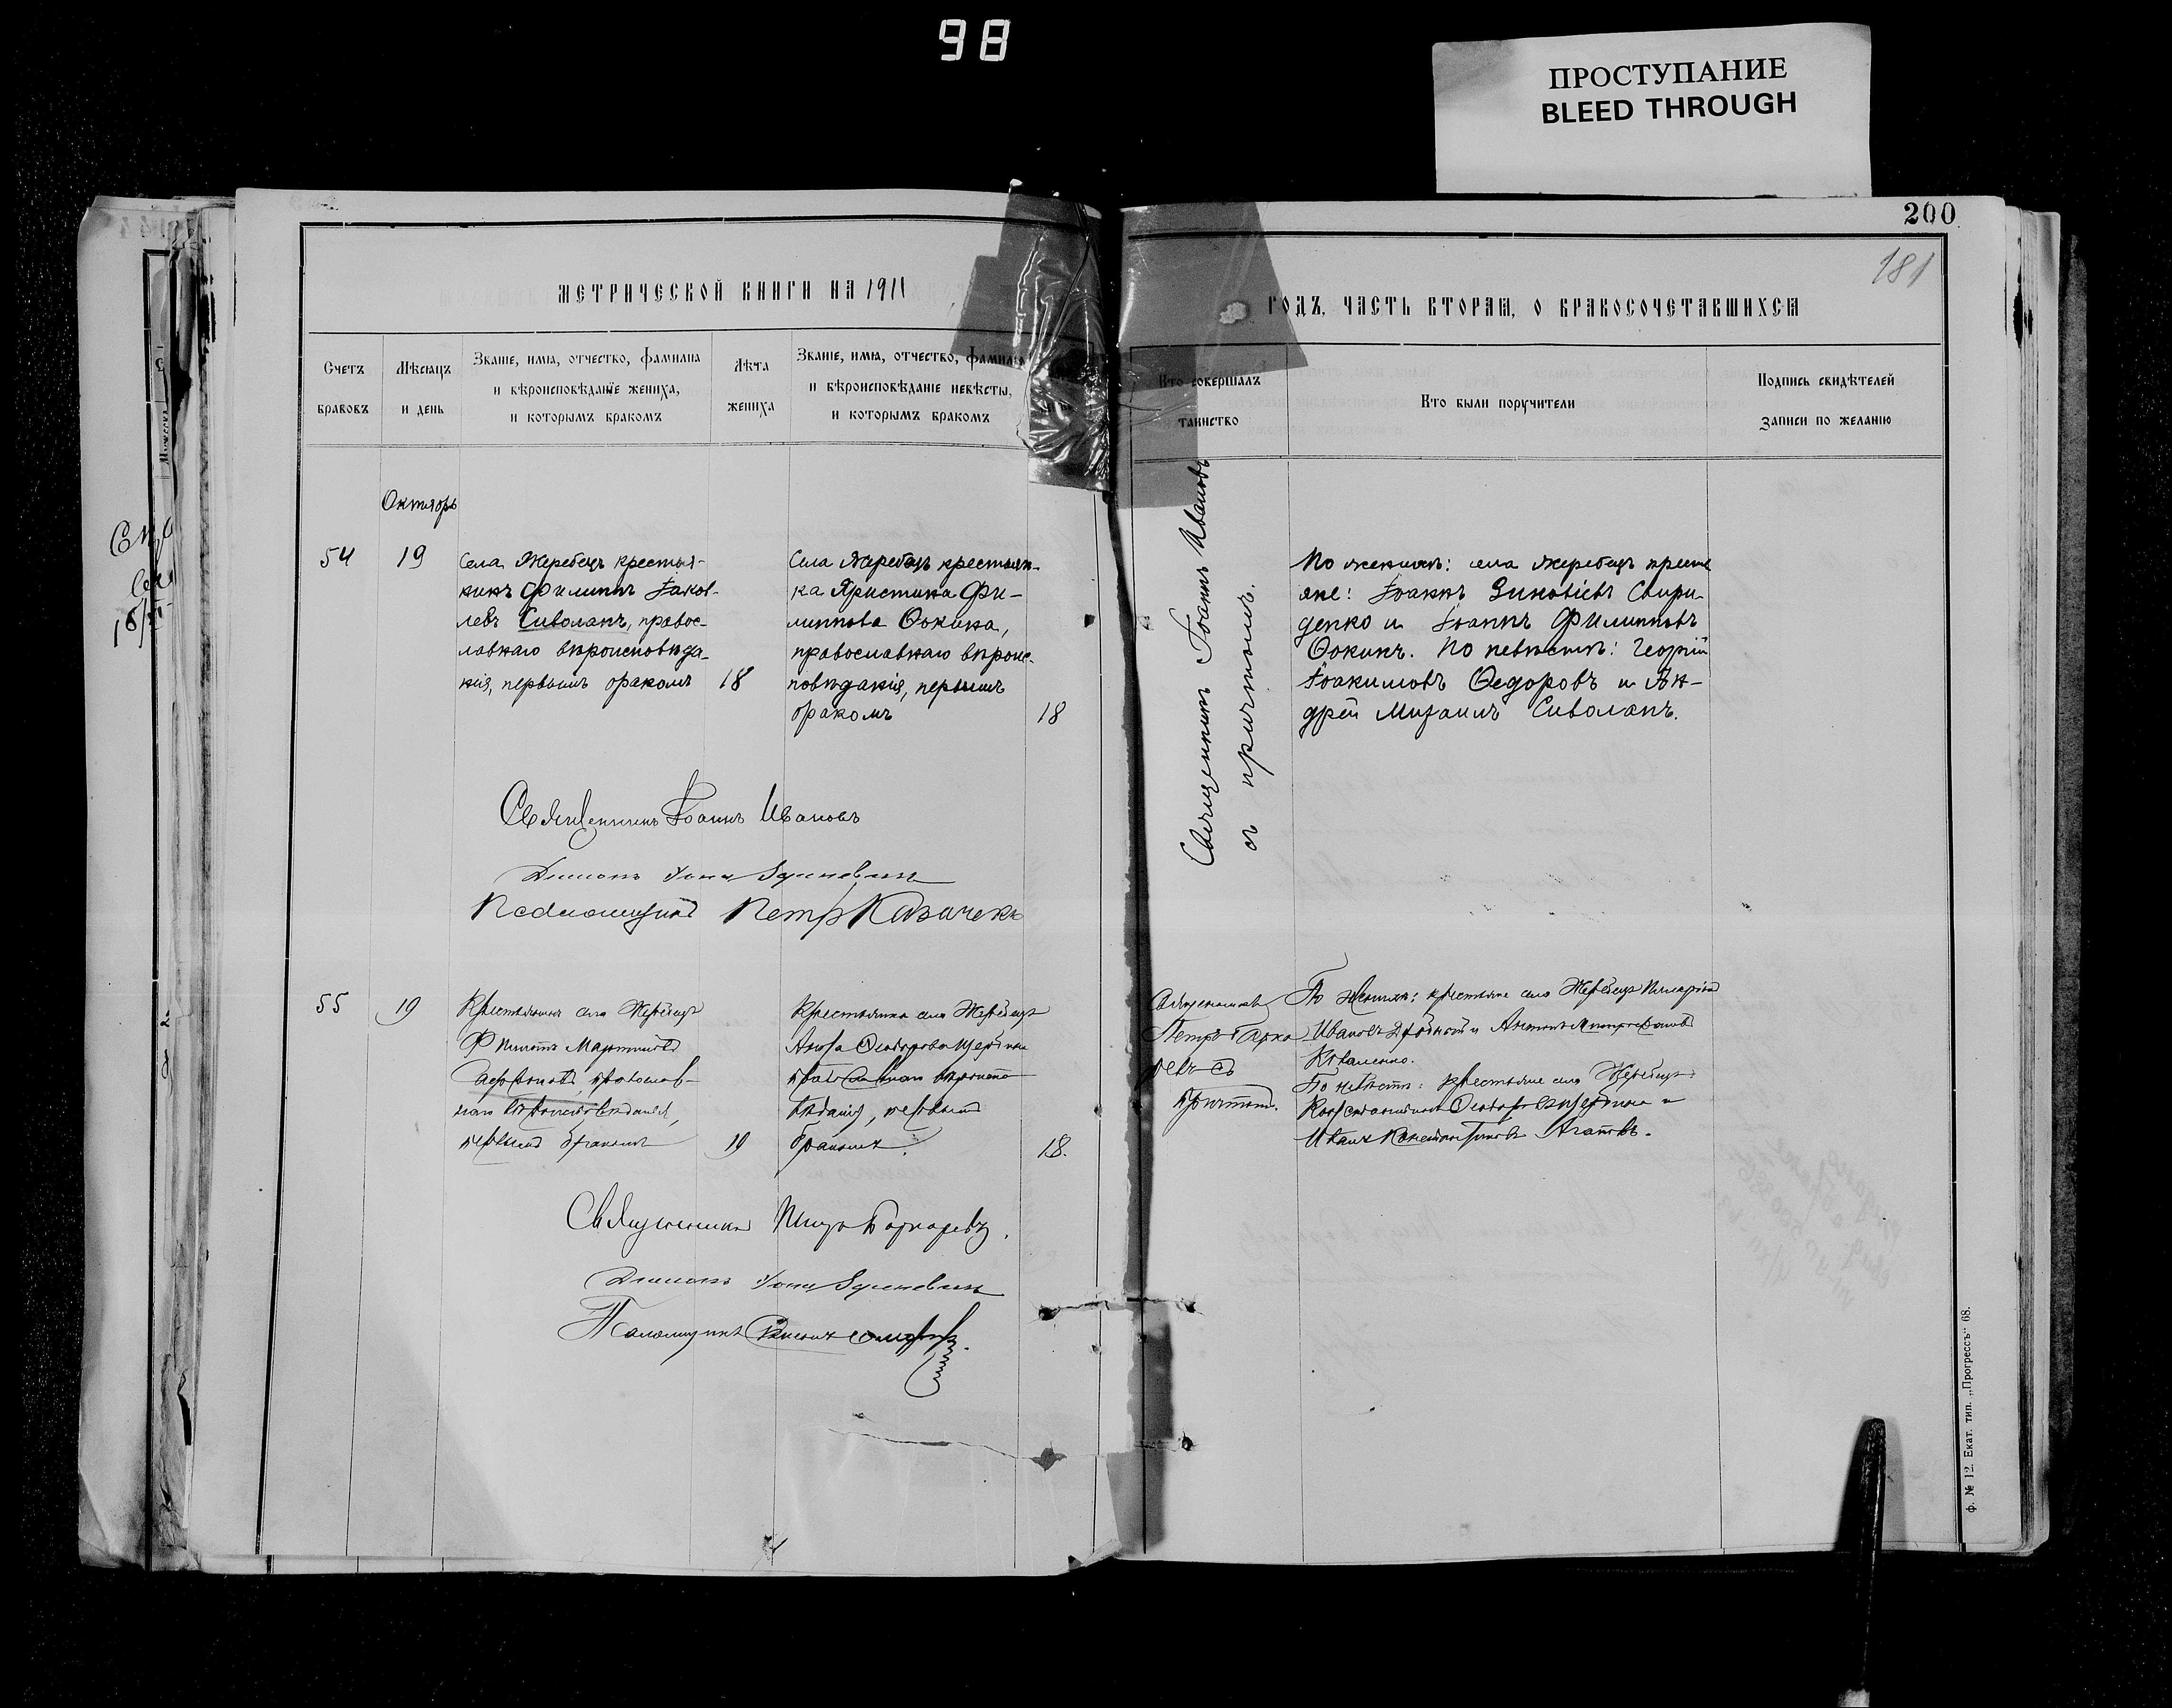 98
ПРОСТУПАНИЕ
BLEED THROUGH
200
181
МЕТРИЧЕСКОЙ КНИГИ НА 1911
ГОДЪ, ЧАСТЬ ВТОРАЯ, О БРАКОСОЧЕТАВШИХСЯ
Счетъ браковъ
Мѣсяцъ и день
Званіе, имя, отчество, фамилія
и вѣроисповѣданіе жениха,
и которымъ бракомъ
Лѣта жениха
Званіе, имя, отчество, фамилія
и вѣроисповѣданіе невѣсты,
и которымъ бракомъ
Кто совершалъ
таинство
Кто были поручители
Подпись свидѣтелей
записи по желанію
Октябрь
54
19
Села Жеребецъ крестья-
нинъ Филиппъ Іаков-
левъ Сиволапъ, правос-
лавнаго вѣроисповѣда-
нія, первымъ бракомъ
18
Села Жеребецъ крестьян-
ка Христина Фи-
липпова Ѳокина,
православнаго вѣроис-
повѣданія, первымъ
бракомъ
18
Священникъ Іоаннъ Ивановъ
съ причтомъ.
По женихѣ: села Жеребецъ кресть
яне: Іоаннъ Зиновіевъ Свири-
денко и Іоаннъ Филипповъ
Ѳокинъ. По невѣстѣ: Георгій
Іоакимовъ Ѳедоровъ и Ан-
дрей Михаилъ Сиволапъ.
Священникъ Іоаннъ Ивановъ
Діаконъ Іона
Псаломщикъ Петръ Казачекъ
55
19
Крестьянинъ села Жеребецъ
Филиппъ Мартиновъ
православ-
наго вѣроисповѣданія,
первымъ бракомъ
19
Крестьянка села Жеребецъ
Анна Ѳеодорова
православнаго вѣроиспо
вѣданія, первымъ
бракомъ.
18.
Священникъ
Петръ
съ
причтомъ.
По женихѣ: крестьяне села Жеребецъ
Ивановъ и Антонъ Митрофановъ
Коваленко.
По невѣстѣ: крестьяне села Жеребецъ:
Константинъ Ѳеодоровъ и
Иванъ Константиновъ Агаповъ.
Священникъ Петръ
Діаконъ Іона
Псаломщикъ
Ф. № 12. Екат. тип. „Прогрессъ“ 68.